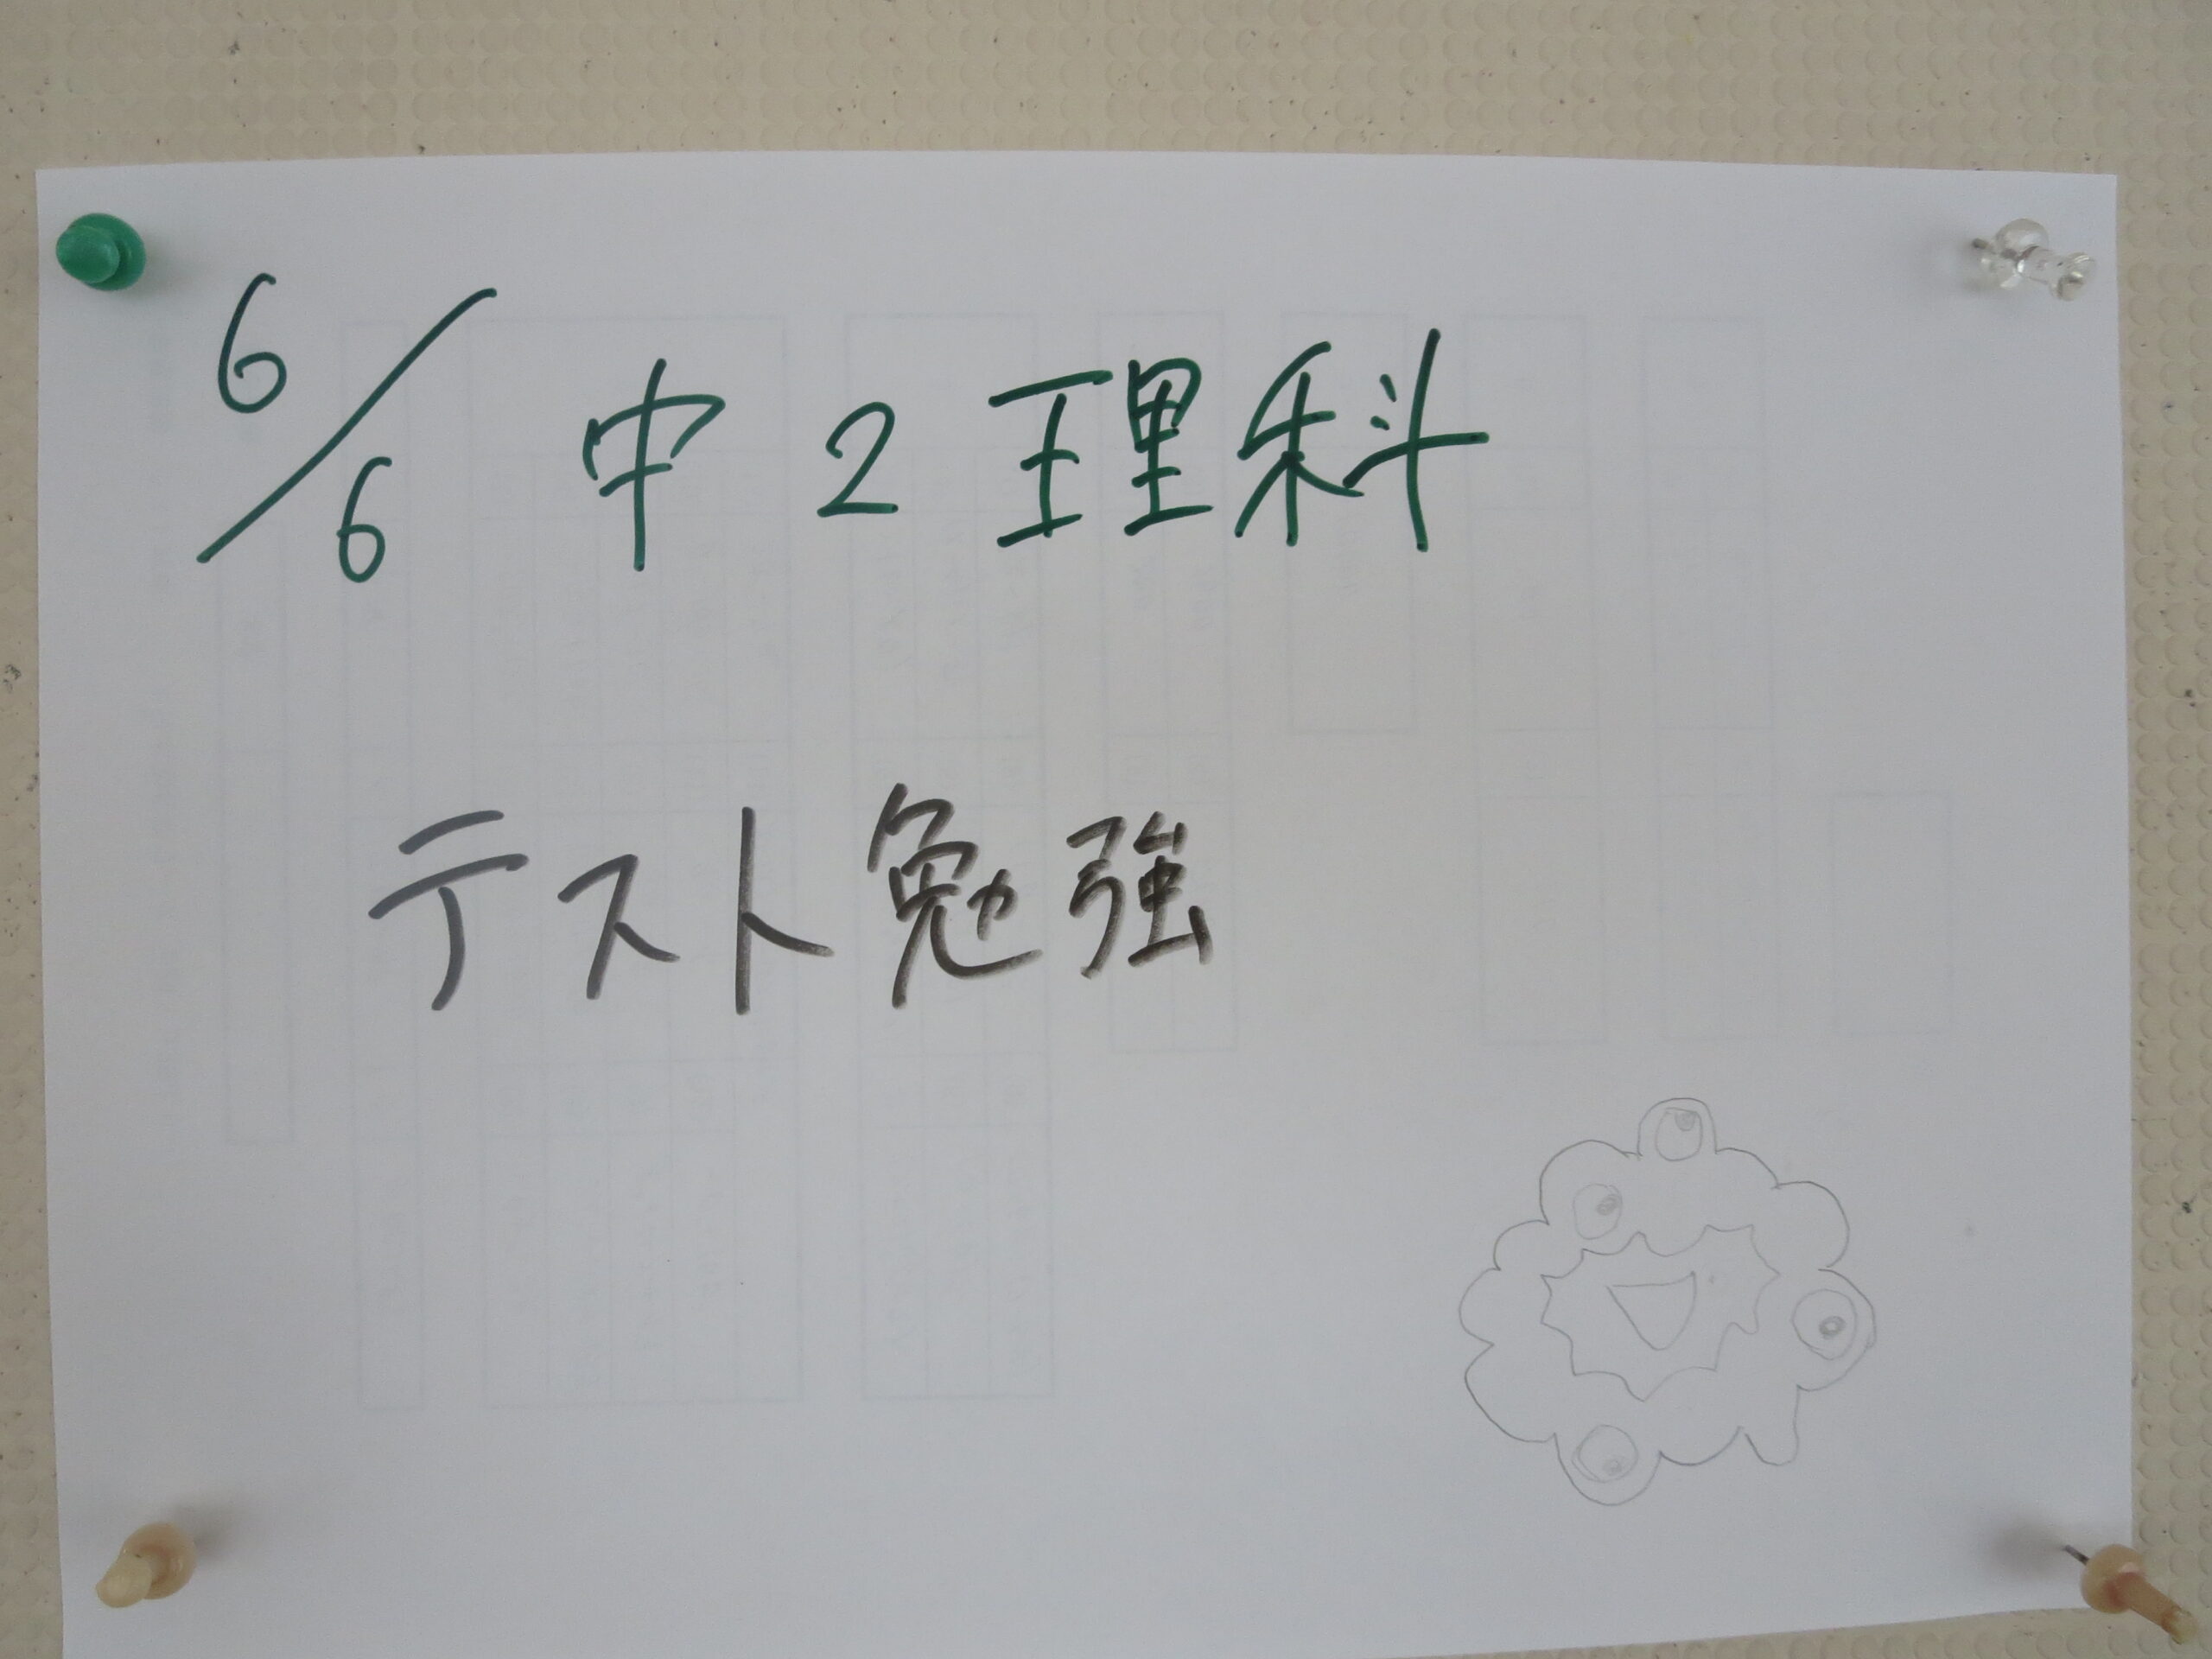 6/6 中2理科
テスト勉強